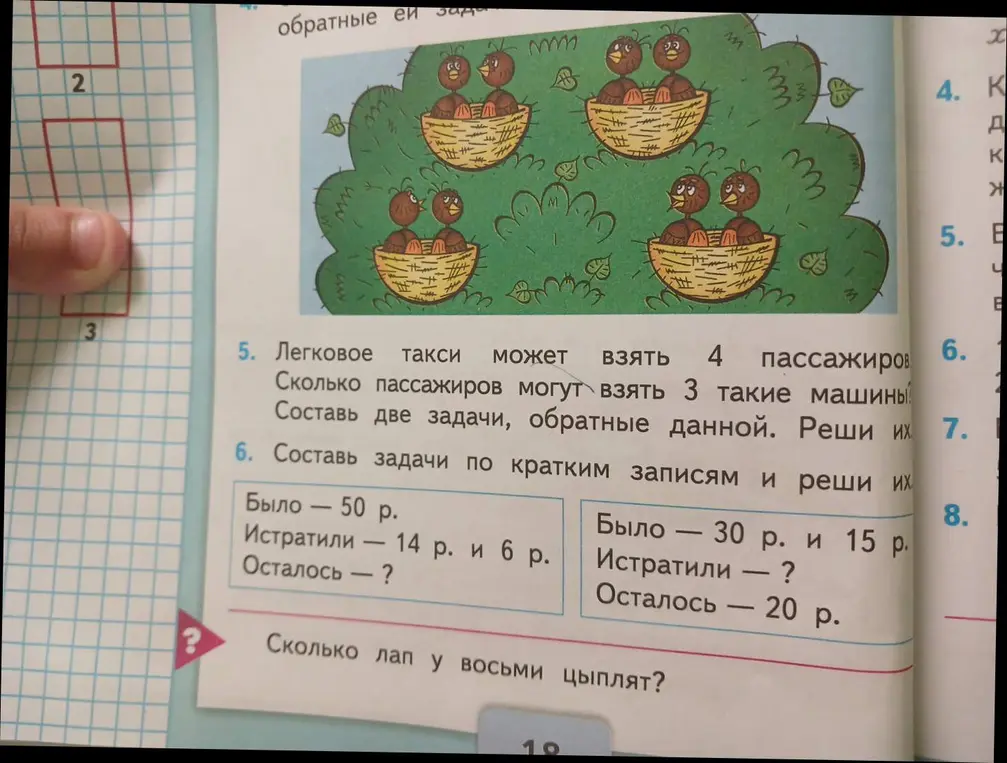 2
3
обратные ей
5. Легковое такси может взять 4 пассажиров.
Сколько пассажиров могут взять 3 такие машины?
Составь две задачи, обратные данной. Реши их.
6. Составь задачи по кратким записям и реши их.
Было — 50 р.
Истратили — 14 р. и 6 р.
Осталось — ?
Было — 30 р. и 15 р.
Истратили — ?
Осталось — 20 р.
?
Сколько лап у восьми цыплят?
4.
5.
6.
7.
8.